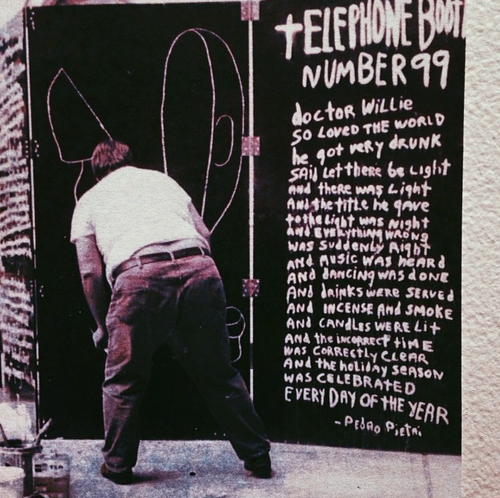 tELEPHONE BOOT
NUMBER 99
doctor Willie
SO LOVED THE WORLD
he got very drunk
said Let there be Light
and there was Light
And the title he gave
to the Light was Night
and Everything WRONG
was suddenly Right
AND MUSIC WAS HEARD
AND DANCING WAS DONE
And drinks were SERVED
AND INCENSE AND SMOKE
AND CANDLES WERE LIT
And the incorrect TIME
WAS CORRECTLY CLEAR
And the holiday SEASON
WAS CELEBRATED
EVERY DAY OF THE YEAR
- PEDRO PIETRI